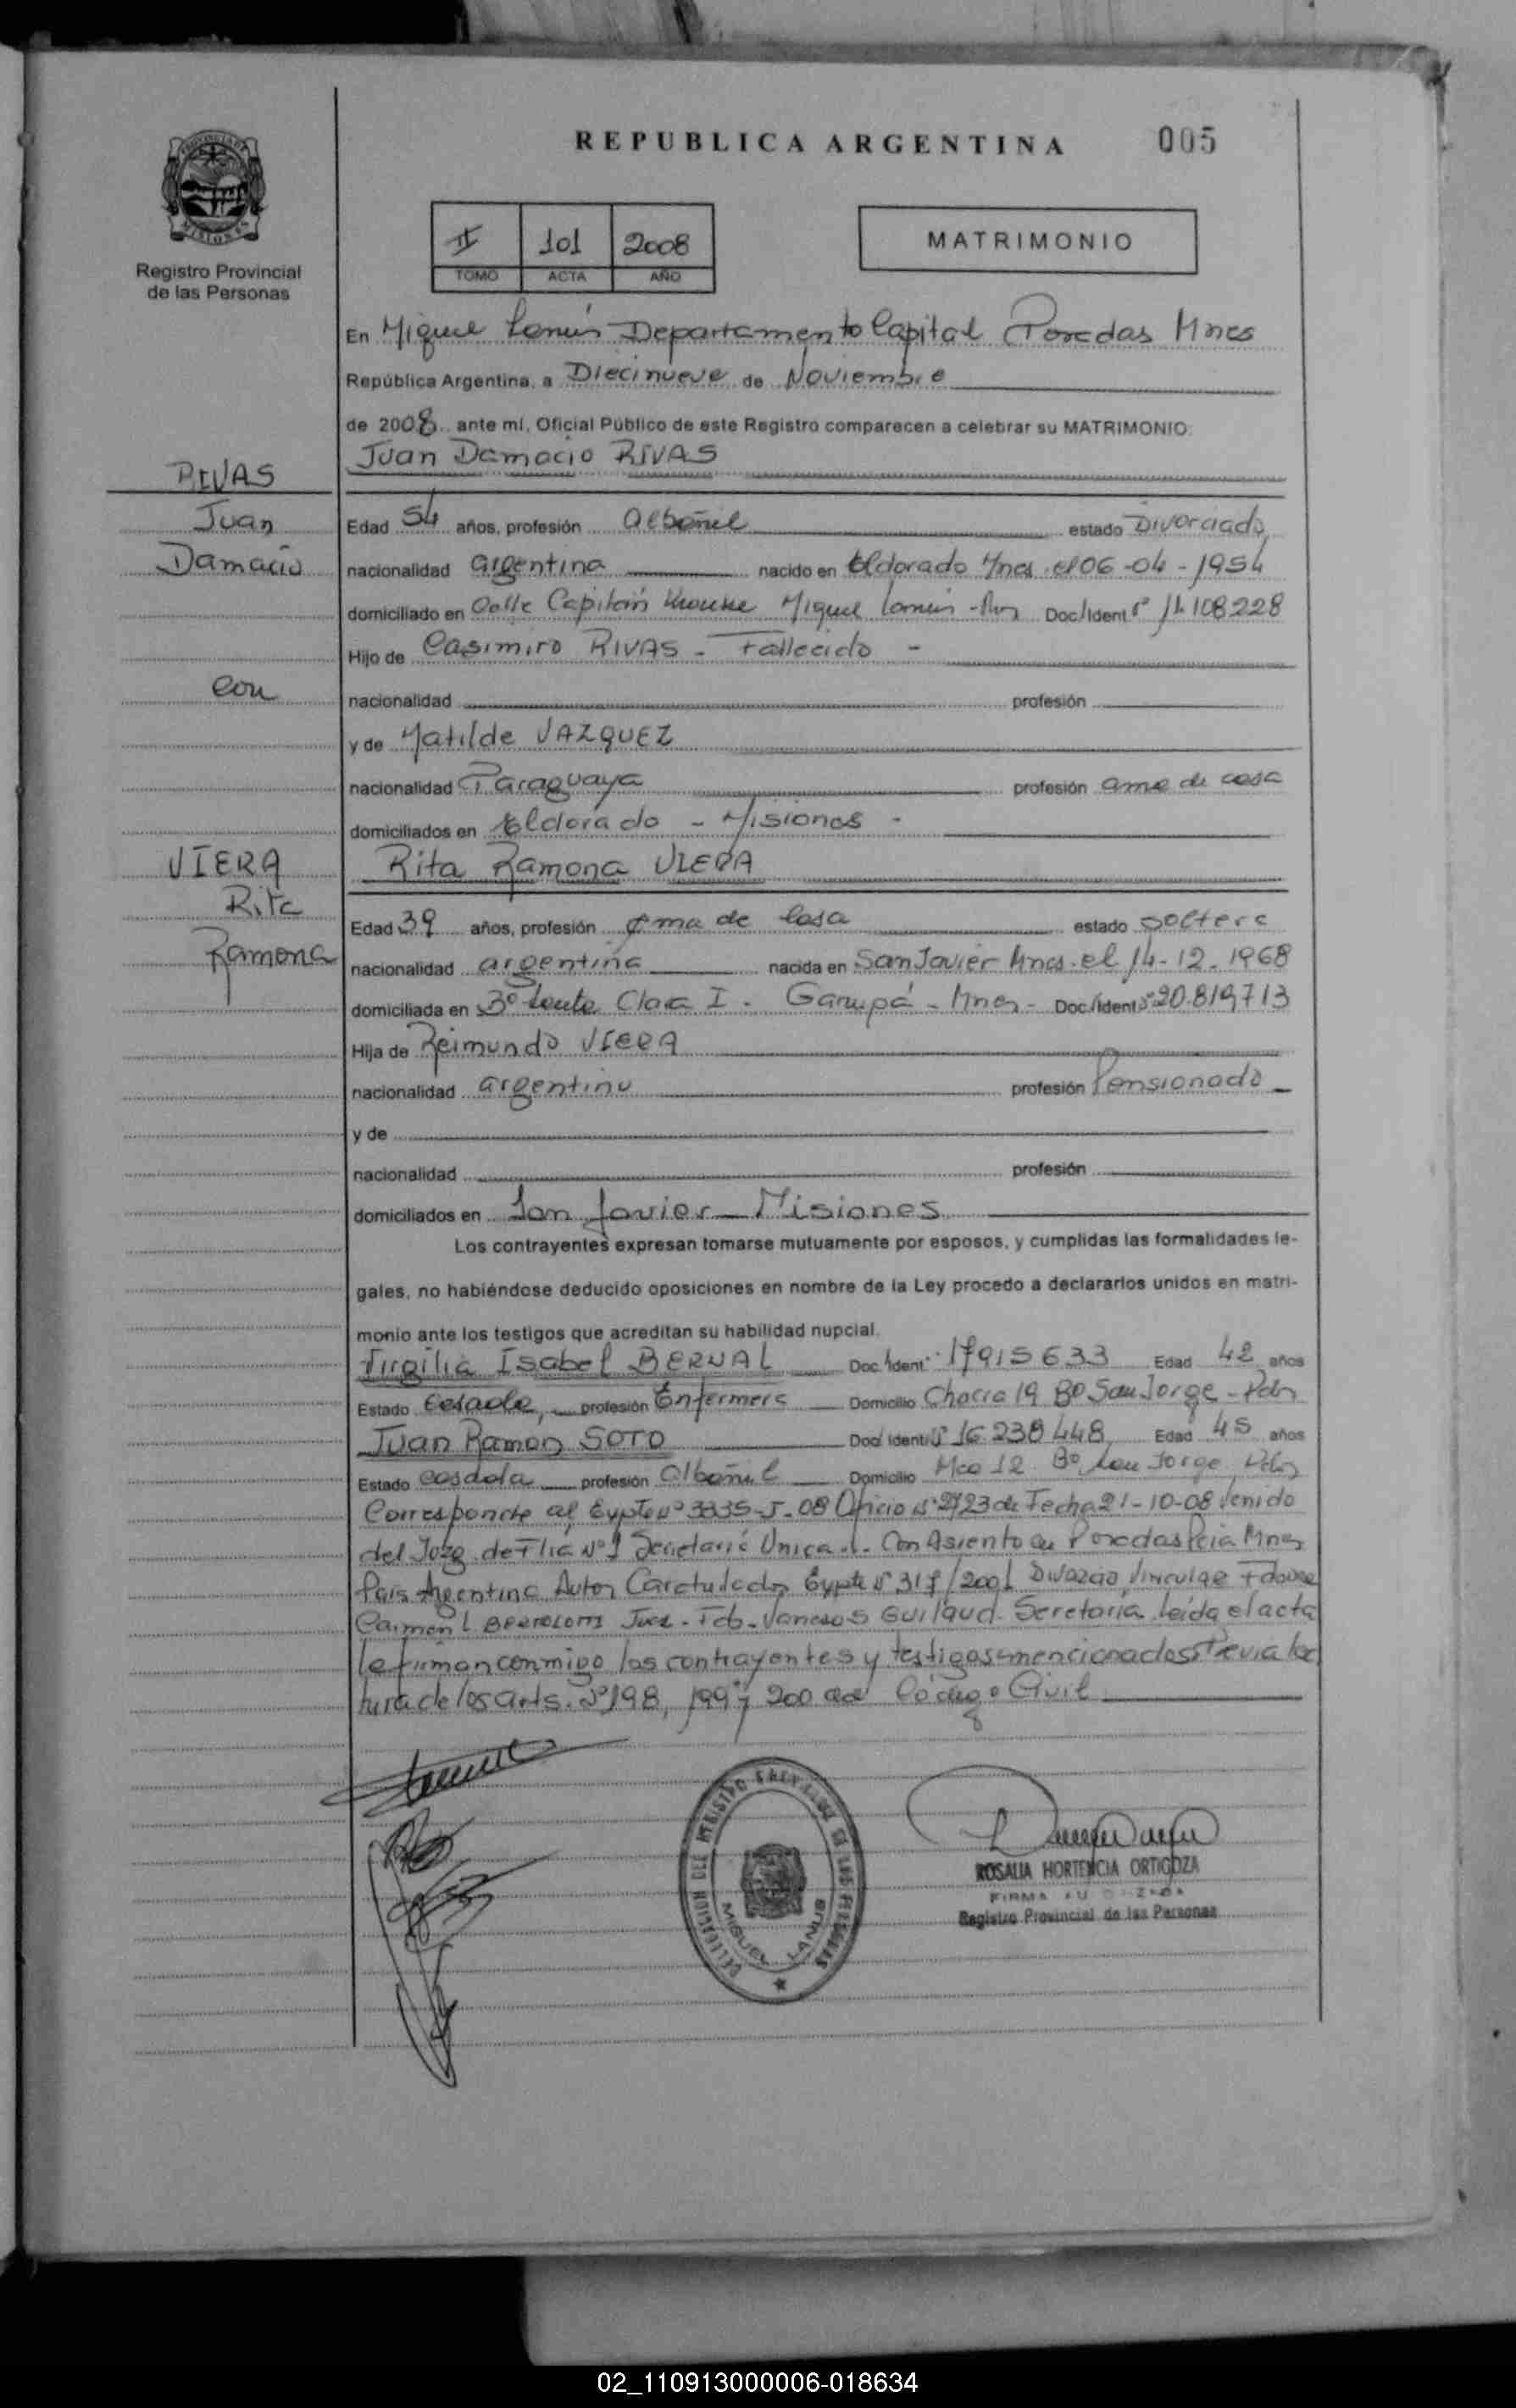 REPUBLICA ARGENTINA 005
PROVINCIA DE MISIONES
Registro Provincial
de las Personas
II 101 2008
TOMO ACTA AÑO
MATRIMONIO
En Miguel Lanús Departamento Capital Posadas Mnes
República Argentina, a Diecinueve de Noviembre
de 2008 ante mí, Oficial Público de este Registro comparecen a celebrar su MATRIMONIO:
Juan Damacio RIVAS
RIVAS
Juan
Damacio
con
VIERA
Rita
Ramona
Edad 54 años, profesión albañil estado Divorciado
nacionalidad argentina nacido en Eldorado Mnes el 06-04-1954
domiciliado en Calle Capitán Krouse Miguel Lanús - Mnes Doc/Ident Nº 11.108228
Hijo de Casimiro RIVAS - Fallecido -
nacionalidad profesión
y de Matilde VAZQUEZ
nacionalidad Paraguaya profesión ama de casa
domiciliados en Eldorado - Misiones -
Rita Ramona VIERA
Edad 39 años, profesión ama de casa estado soltera
nacionalidad argentina nacida en San Javier Mnes. el 14-12-1968
domiciliada en Santa Clara I - Garupá - Mnes - Doc/Ident Nº 20.819713
Hija de Reimundo VIERA
nacionalidad argentino profesión Pensionado
y de
nacionalidad profesión
domiciliados en San Javier - Misiones
Los contrayentes expresan tomarse mutuamente por esposos, y cumplidas las formalidades le-
gales, no habiéndose deducido oposiciones en nombre de la Ley procedo a declararlos unidos en matri-
monio ante los testigos que acreditan su habilidad nupcial.
Virgilia Isabel BERNAL Doc. Ident. 17915633 Edad 42 años
Estado Casada, profesión Enfermera Domicilio Chacra 19 Bº San Jorge - Pdas
Juan Ramon SOTO Doc/ Ident Nº 16.238448 Edad 45 años
Estado casado profesión albañil Domicilio Mza 12 Bº San Jorge Pdas
Corresponde al Expte Nº 3335-J-08 Oficio Nº 2723 de Fecha 21-10-08 venido
del Juzg. de Flia Nº 1 Secretaría Unica Con Asiento en Posadas Pcia Mnes
País Argentina Autos Caratulados Expte Nº 317/2001 Divorcio Vincular Fdo
Carmen L. BERTOLOTTI Juez - Fdo - Vanesa S Guilaud - Secretaria. Leída el acta
la firman conmigo los contrayentes y testigos mencionados Previa lec
tura de los arts. Nº 198, 199 y 200 del Código Civil
DELEGACION DEL REGISTRO PROVINCIAL DE LAS PERSONAS
MIGUEL LANUS
ROSALIA HORTENCIA ORTIGOZA
FIRMA AUTORIZADA
Registro Provincial de las Personas
02_110913000006-018634